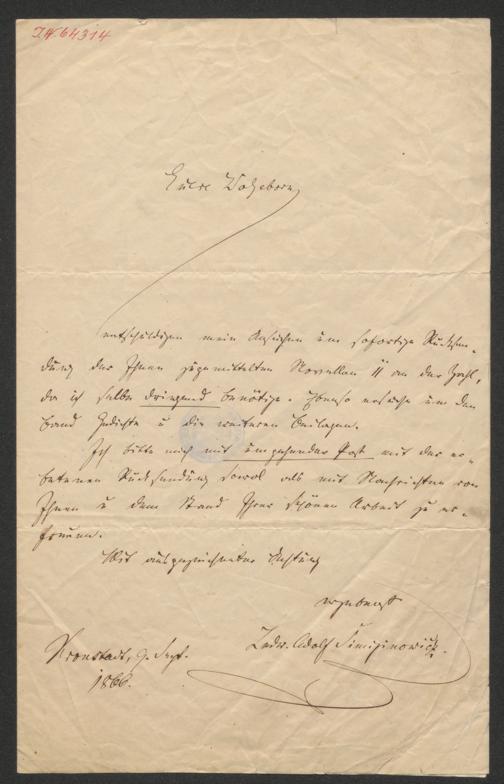 I.N. 64314
Euere Wolgeborn
entschuldigen mein Ansuchen um sofortige Rücksen-
dung der Ihnen zugemittelten Novellen 11 an der Zahl,
da ich selbe dringend benötige. Ebenso ersuche um den
Band Gedichte u die weiteren Beilagen.
Ich bitte mich mit umgehender Post mit der er-
betenen Rücksendung sowol als mit Nachrichten von
Ihnen u dem Stand Ihrer schönen Arbeit zu er-
freuen.
Mit ausgezeichneter Achtung
ergebenst
Ludw. Adolf Simiginowicz.
Kronstadt, 9. Sept.
1866.